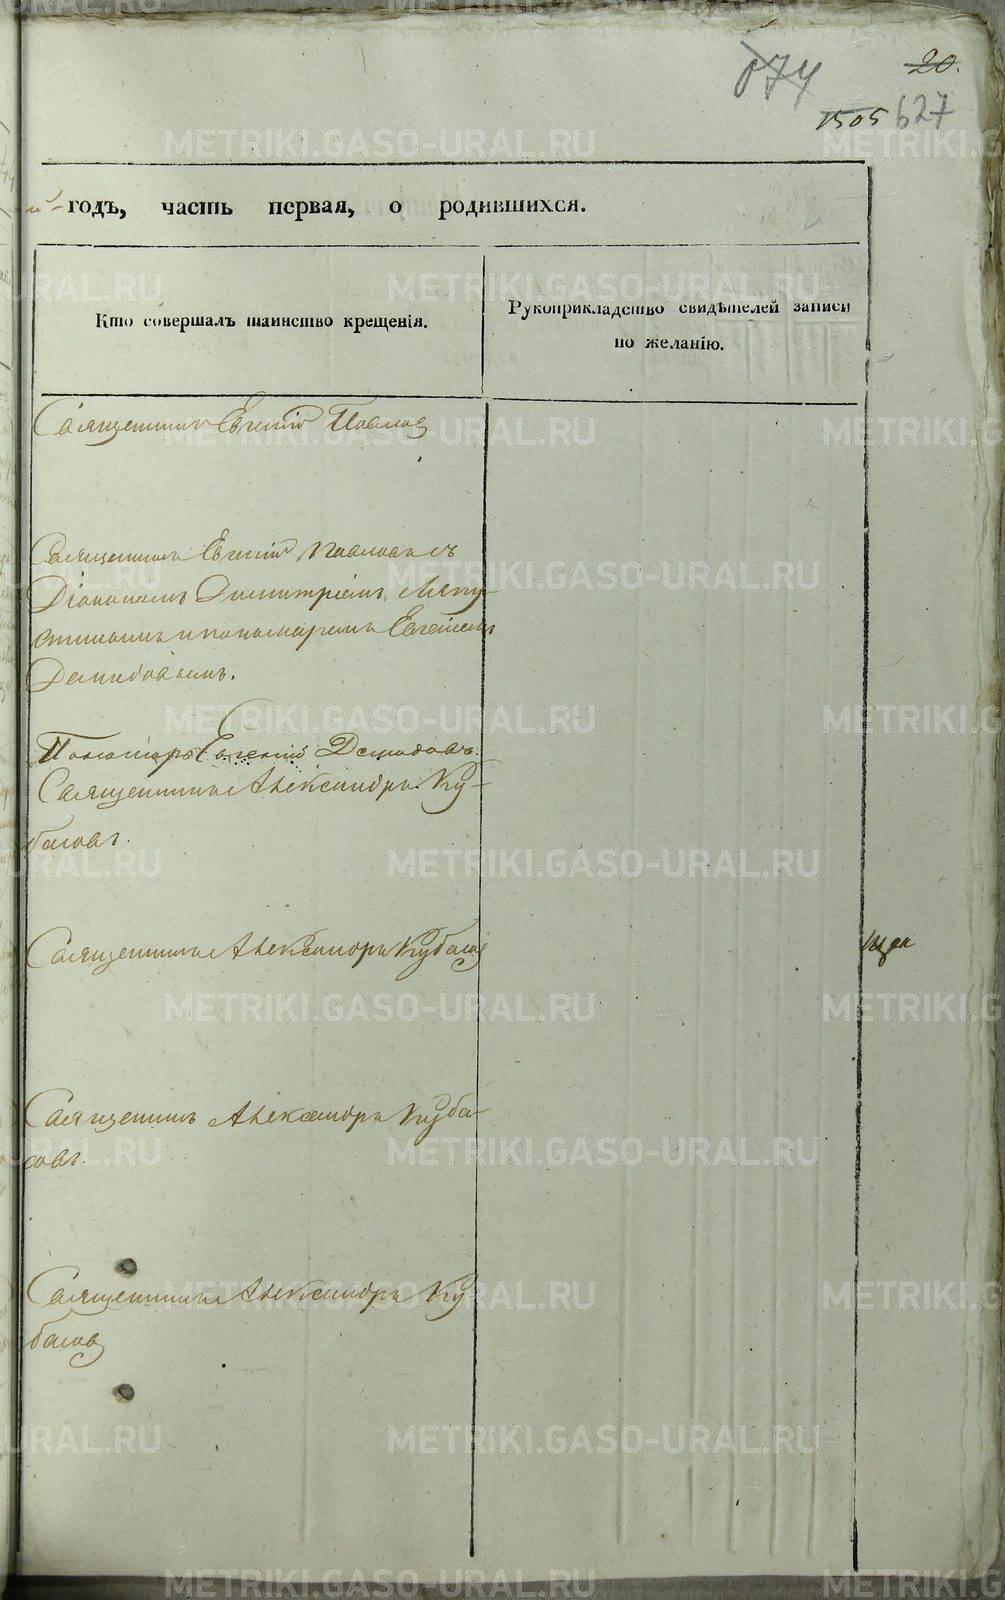 074
20.
1505 627
годъ, часть первая, о родившихся.
Кто совершалъ таинство крещенія.
Рукоприкладство свидѣтелей записи
по желанію.
Священникъ Евгеній Павлов
Священникъ Евгеній Павловъ съ
Діакономъ Димитріемъ Лапу-
стинымъ и пономаремъ Евгеніемъ
Демидовымъ.
Пономарь Евгеній Демидовъ.
Священникъ Александръ Ку-
басовъ.
Священникъ Александръ Кубасов
Священникъ Александръ Куба-
совъ.
Священникъ Александръ Ку
басов
METRIKI.GASO-URAL.RU